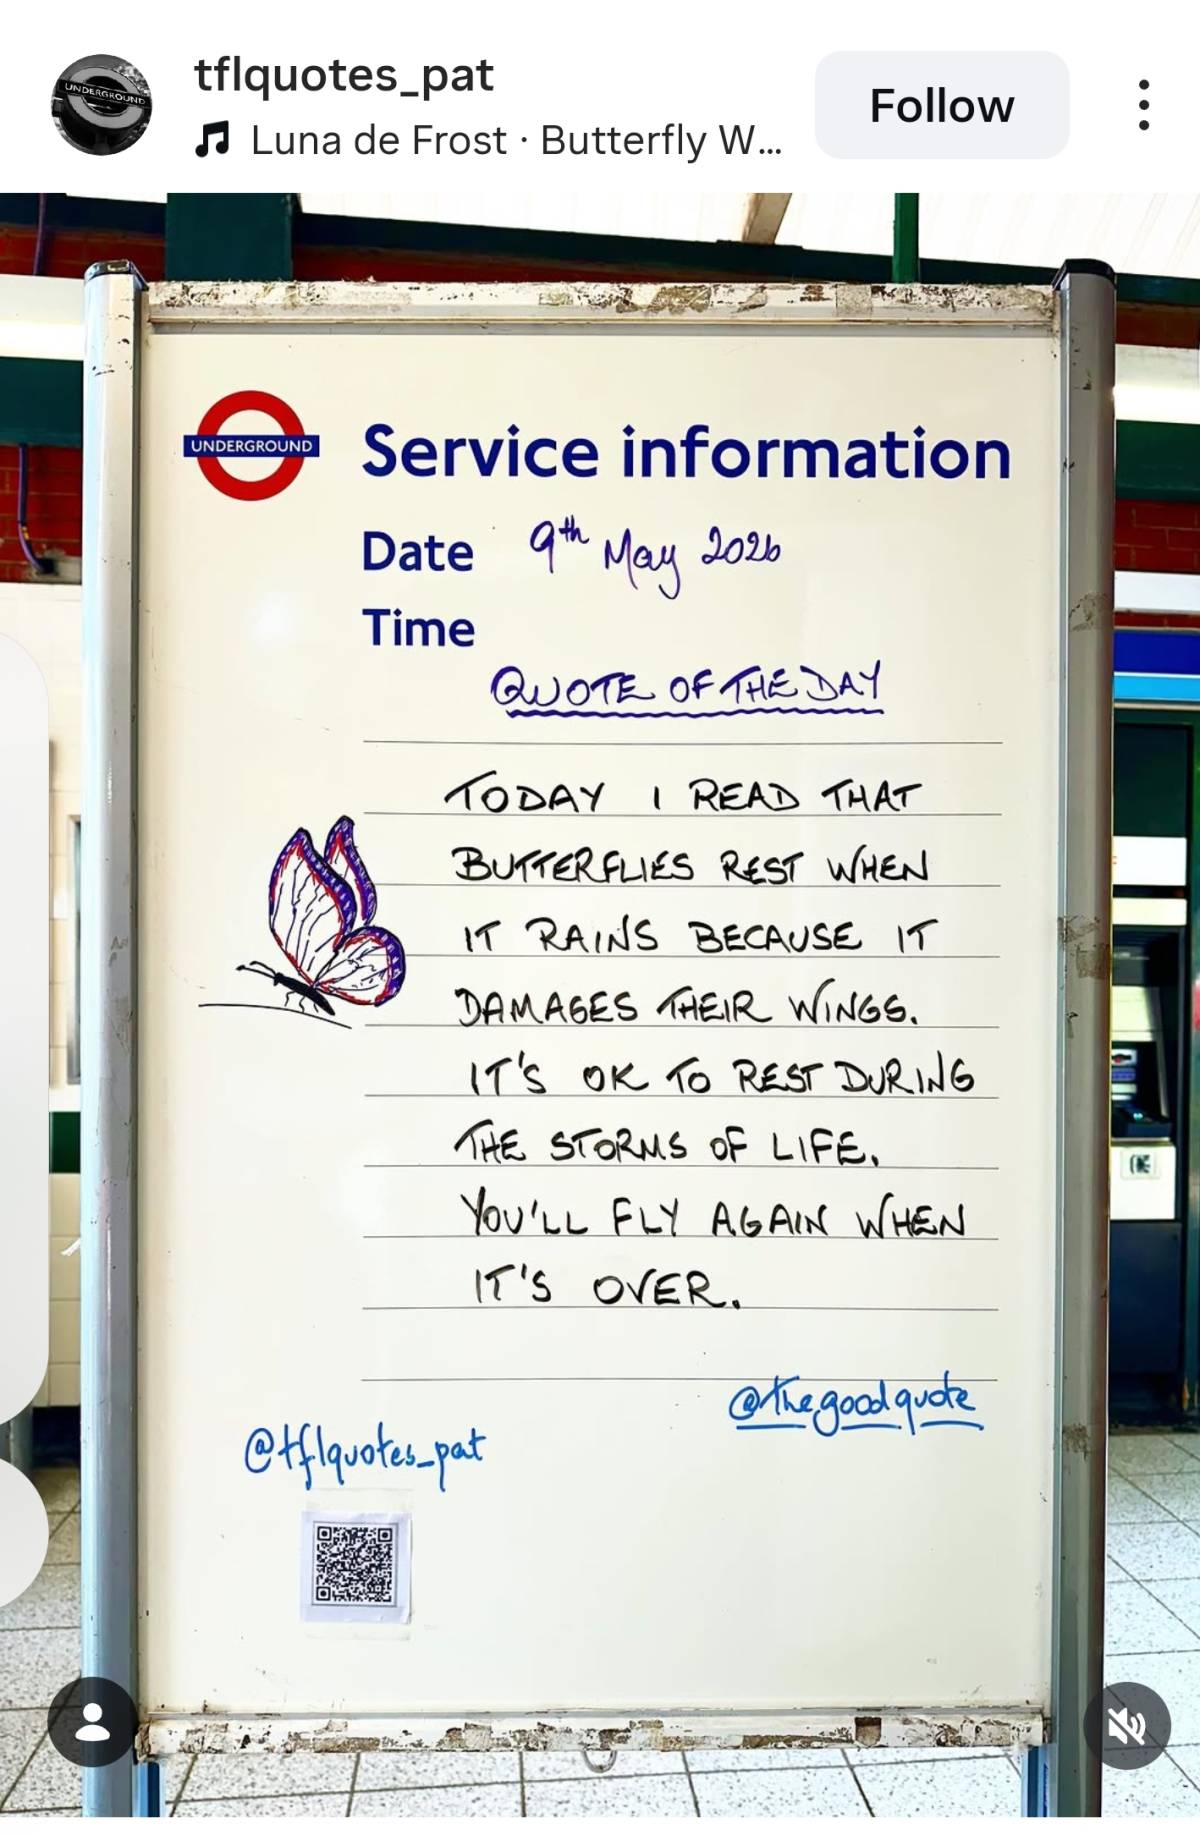 tflquotes_pat
Luna de Frost · Butterfly W...
Follow
UNDERGROUND
UNDERGROUND
Service information
Date 9th May 2026
Time
QUOTE OF THE DAY
TODAY I READ THAT
BUTTERFLIES REST WHEN
IT RAINS BECAUSE IT
DAMAGES THEIR WINGS.
IT'S OK TO REST DURING
THE STORMS OF LIFE.
YOU'LL FLY AGAIN WHEN
IT'S OVER.
@thegoodquote
@tflquotes_pat